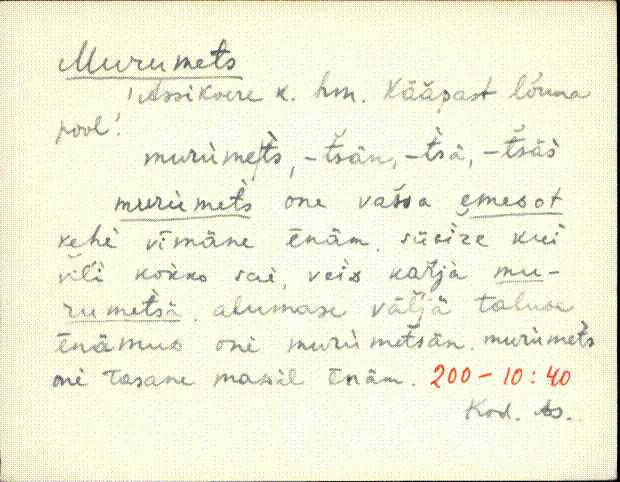 Murumets
'Assikvere k. hm. Kääpast lõuna
pool'.
murùmet̀s, -t̄sän, -t̄sä, -t̄säs̀
murùmet̀s one vassa emesot
kehè vīmäne ēnäm. süvize kui
vīlì kokko saì, veis karjà mu-
rumet̀sä. alumase väljä taluse
ēnämus onì murùmet̀sän. murùmet̀s
onì tasane mar̀il ēnäm. 200-10:40
Kod. As.